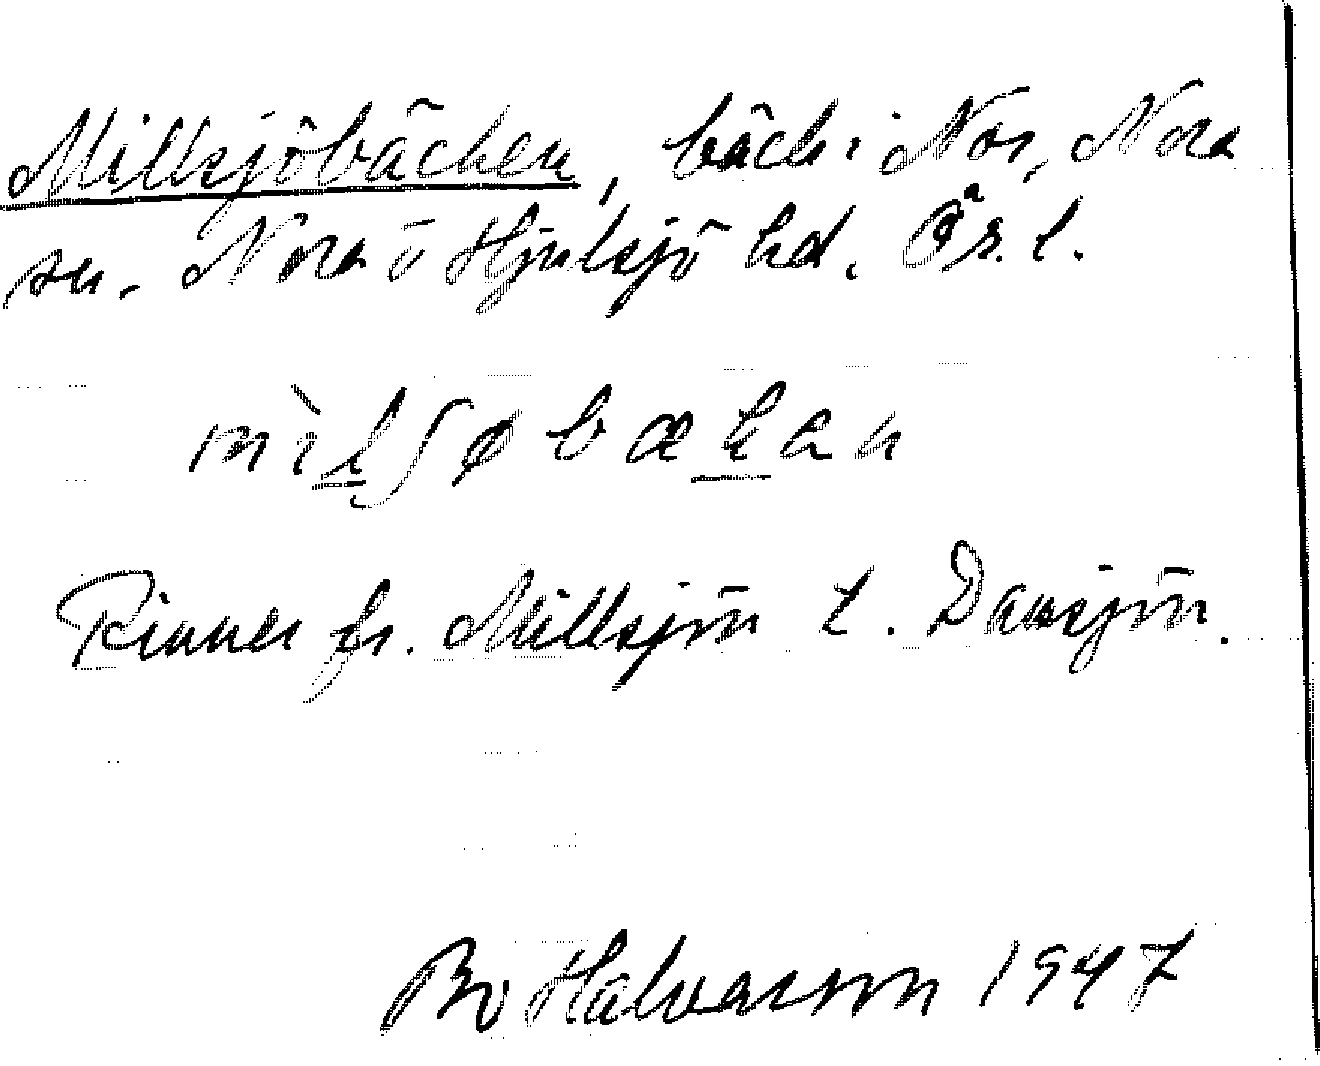 Millsjöbäcken, bäck i Nor, Nora
sn. Nora o Hjulsjö hd. Ör. l.
mìlʃøbækan
Rinner fr. Millsjön t. Dansjön.
Bo Halvarson 1947